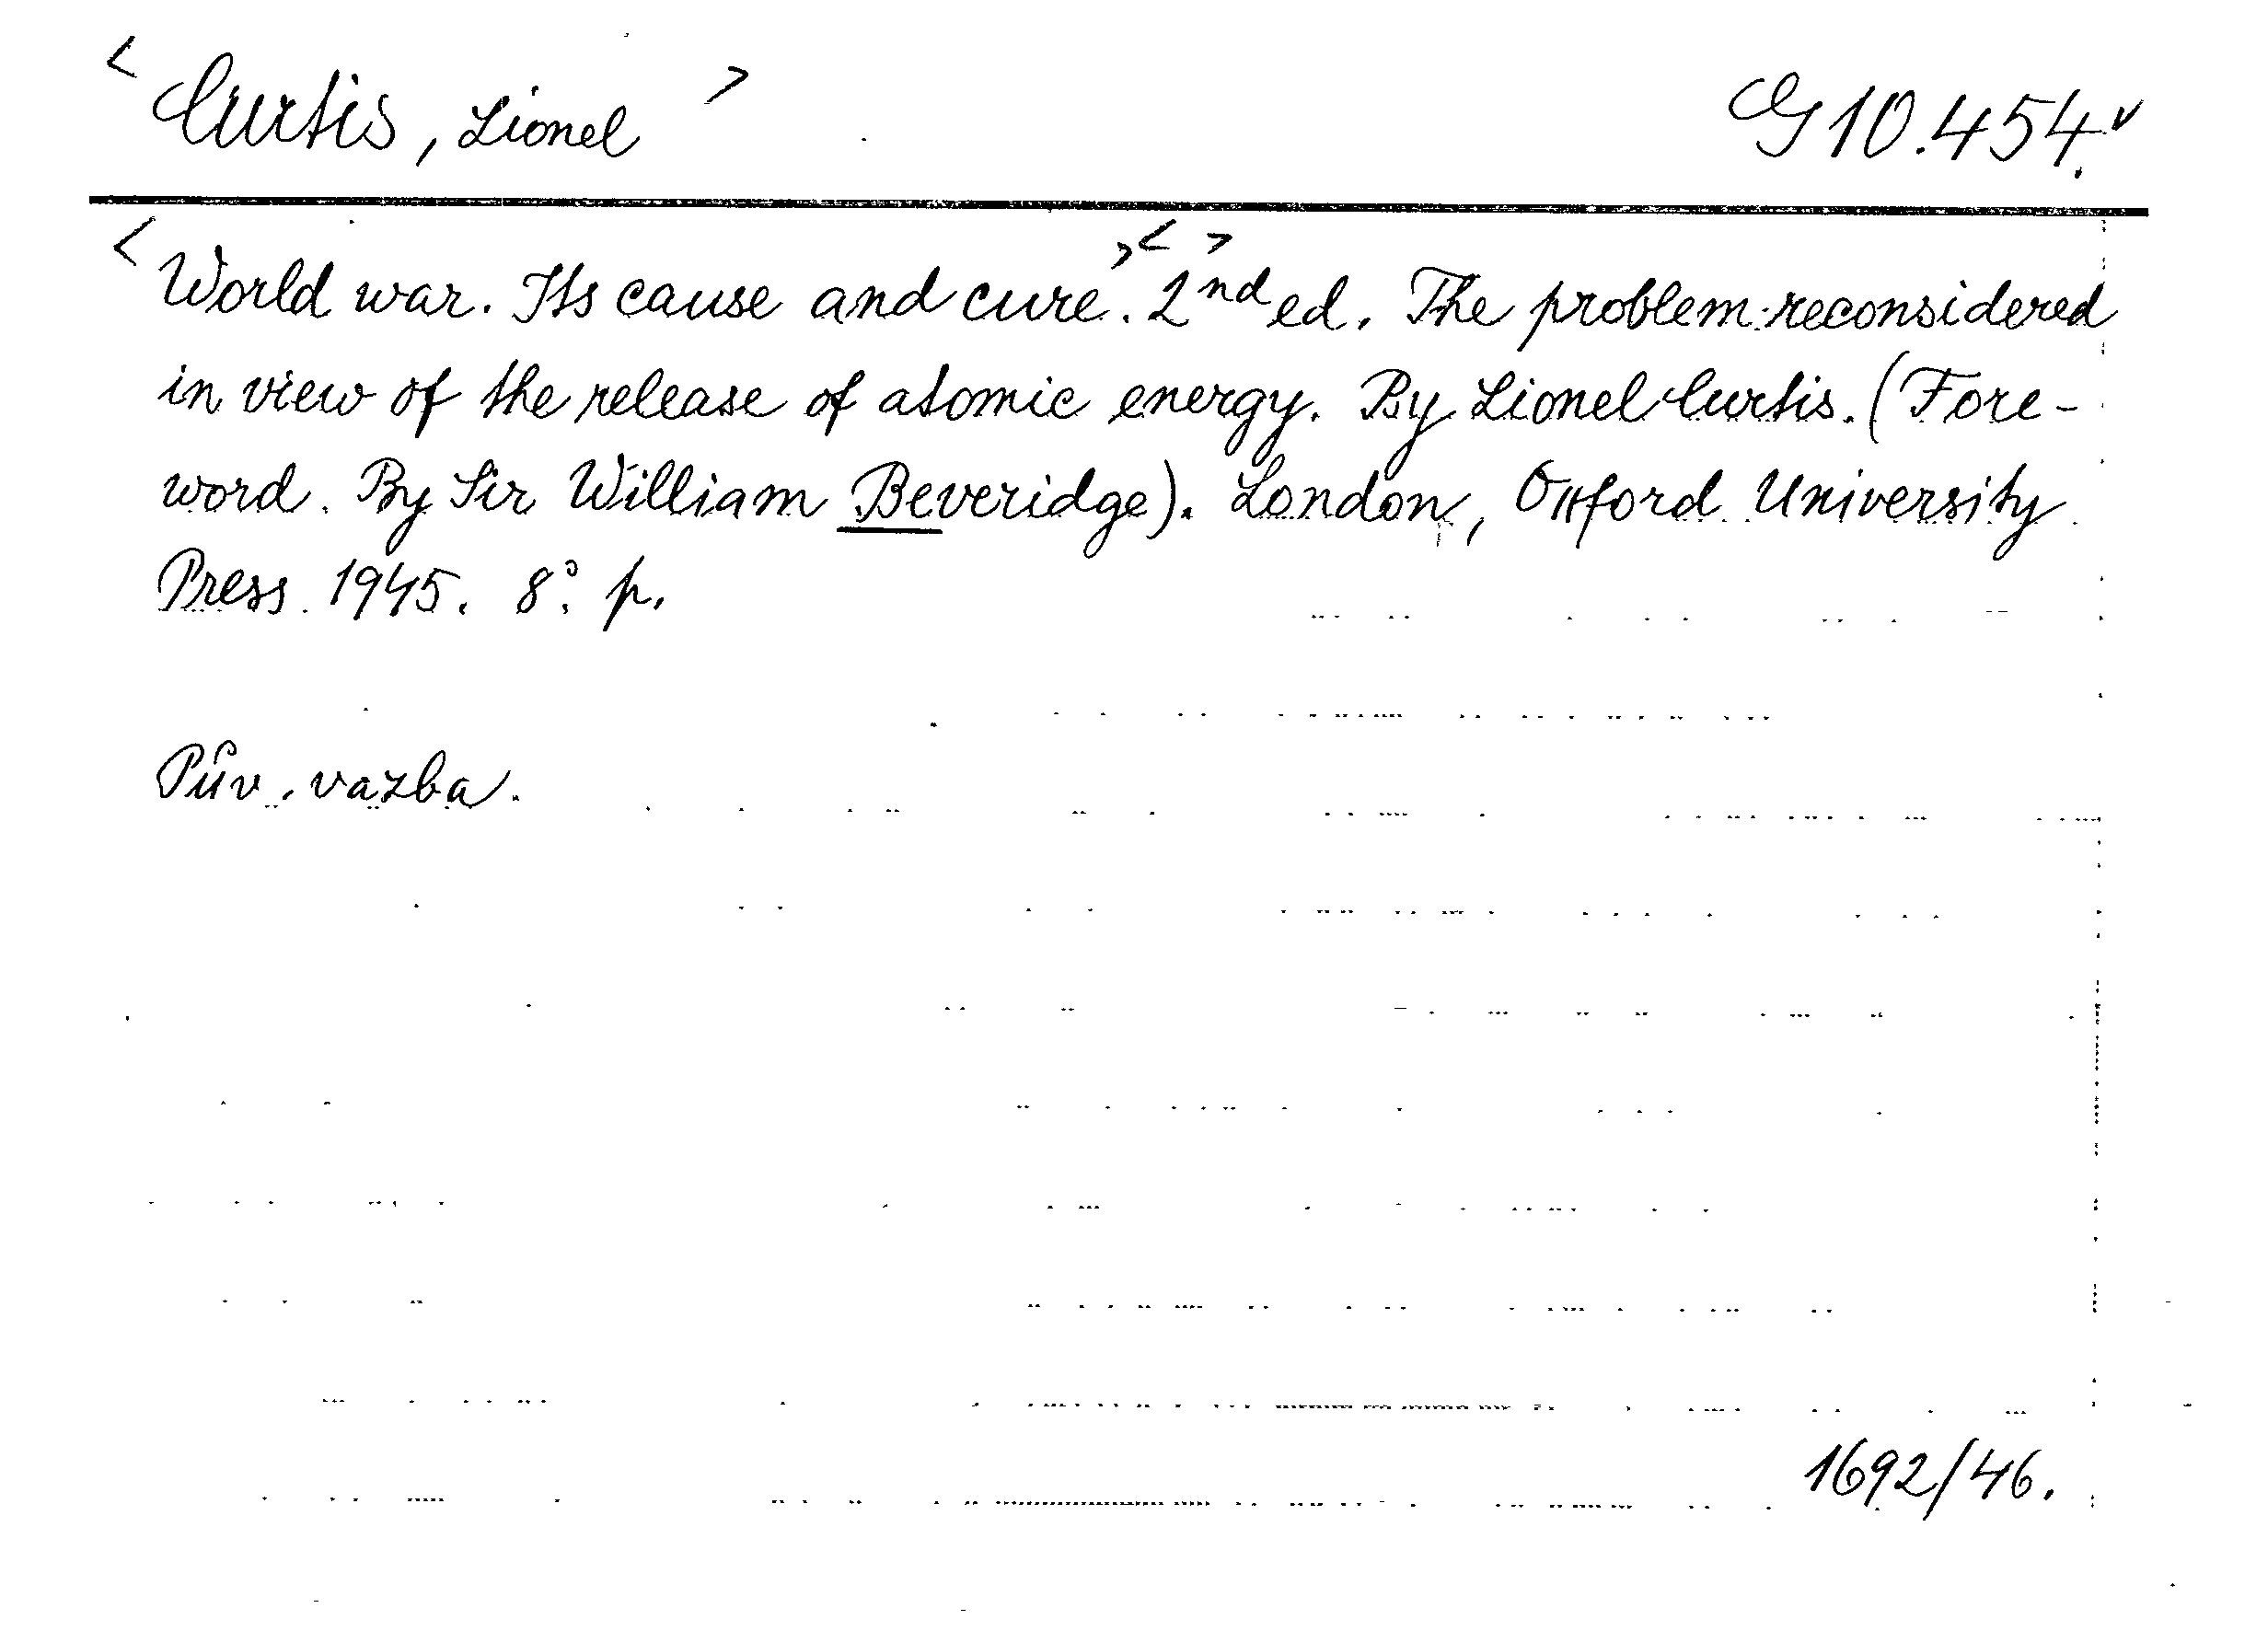 < Curtis, Lionel > G 10.454.v
< World war. Its cause and cure. > < 2nd > ed. The problem reconsidered
in view of the release of atomic energy. By Lionel Curtis. (Fore-
word. By Sir William Beveridge). London, Oxford University
Press 1945. 8°. p.
Pův. vazba.
1692/46.